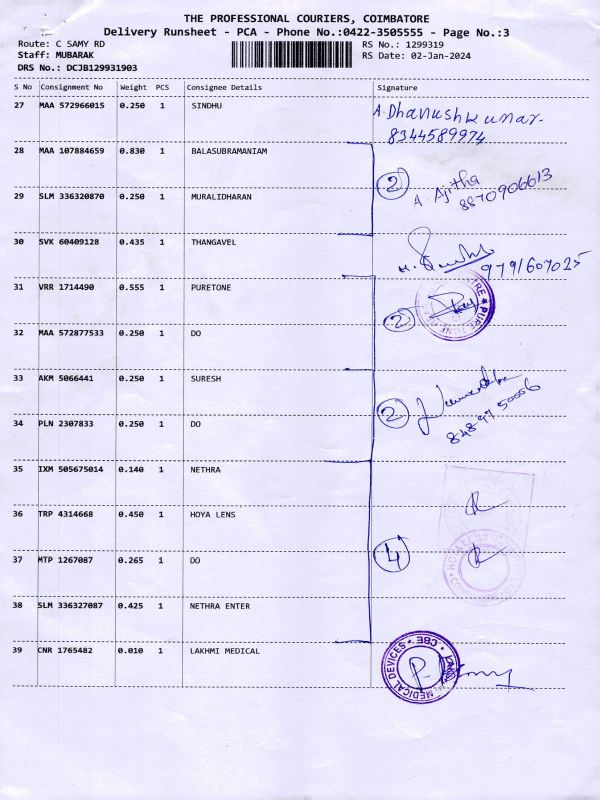 THE PROFESSIONAL COURIERS, COIMBATORE
Delivery Runsheet - PCA - Phone No.:0422-3505555 - Page No.:3
Route: C SAMY RD RS No.: 1299319
Staff: MUBARAK RS Date: 02-Jan-2024
DRS No.: DCJB129931903
S No Consignment No Weight PCS Consignee Details Signature
27 MAA 572966015 0.250 1 SINDHU A. Dhanushkumar.
8344589974
28 MAA 107884659 0.830 1 BALASUBRAMANIAM
2 A Ajitha
8870906613
29 SLM 336320870 0.250 1 MURALIDHARAN
30 SVK 60409128 0.435 1 THANGAVEL
9791607025
31 VRR 1714490 0.555 1 PURETONE
2 PURE TONE
32 MAA 572877533 0.250 1 DO
33 AKM 5066441 0.250 1 SURESH
2
34 PLN 2307833 0.250 1 DO
35 IXM 505675014 0.140 1 NETHRA
36 TRP 4314668 0.450 1 HOYA LENS
4
37 MTP 1267087 0.265 1 DO
38 SLM 336327087 0.425 1 NETHRA ENTER
39 CNR 1765482 0.010 1 LAKHMI MEDICAL
MEDICAL DEVICES CBE